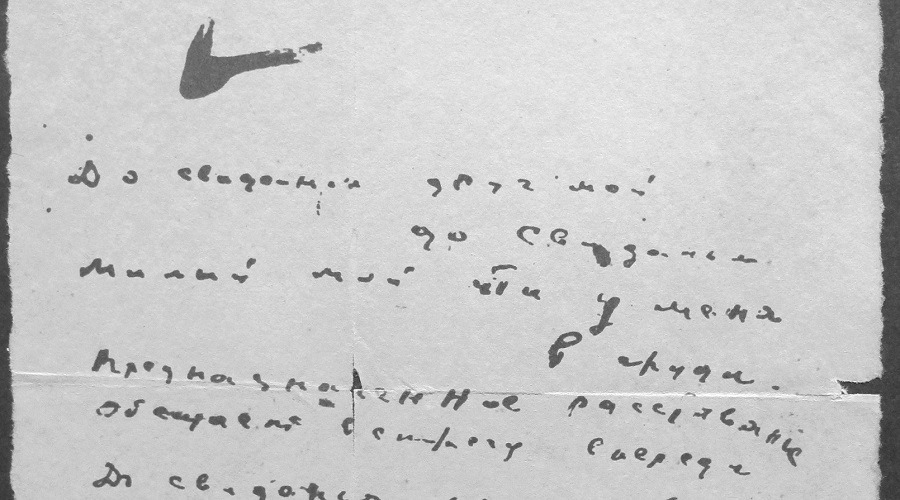 До свиданья друг мой
до свиданья
Милый мой ты у меня
в груди.
Предназначенное расставанье
Обещает встречу впереди
До свиданья